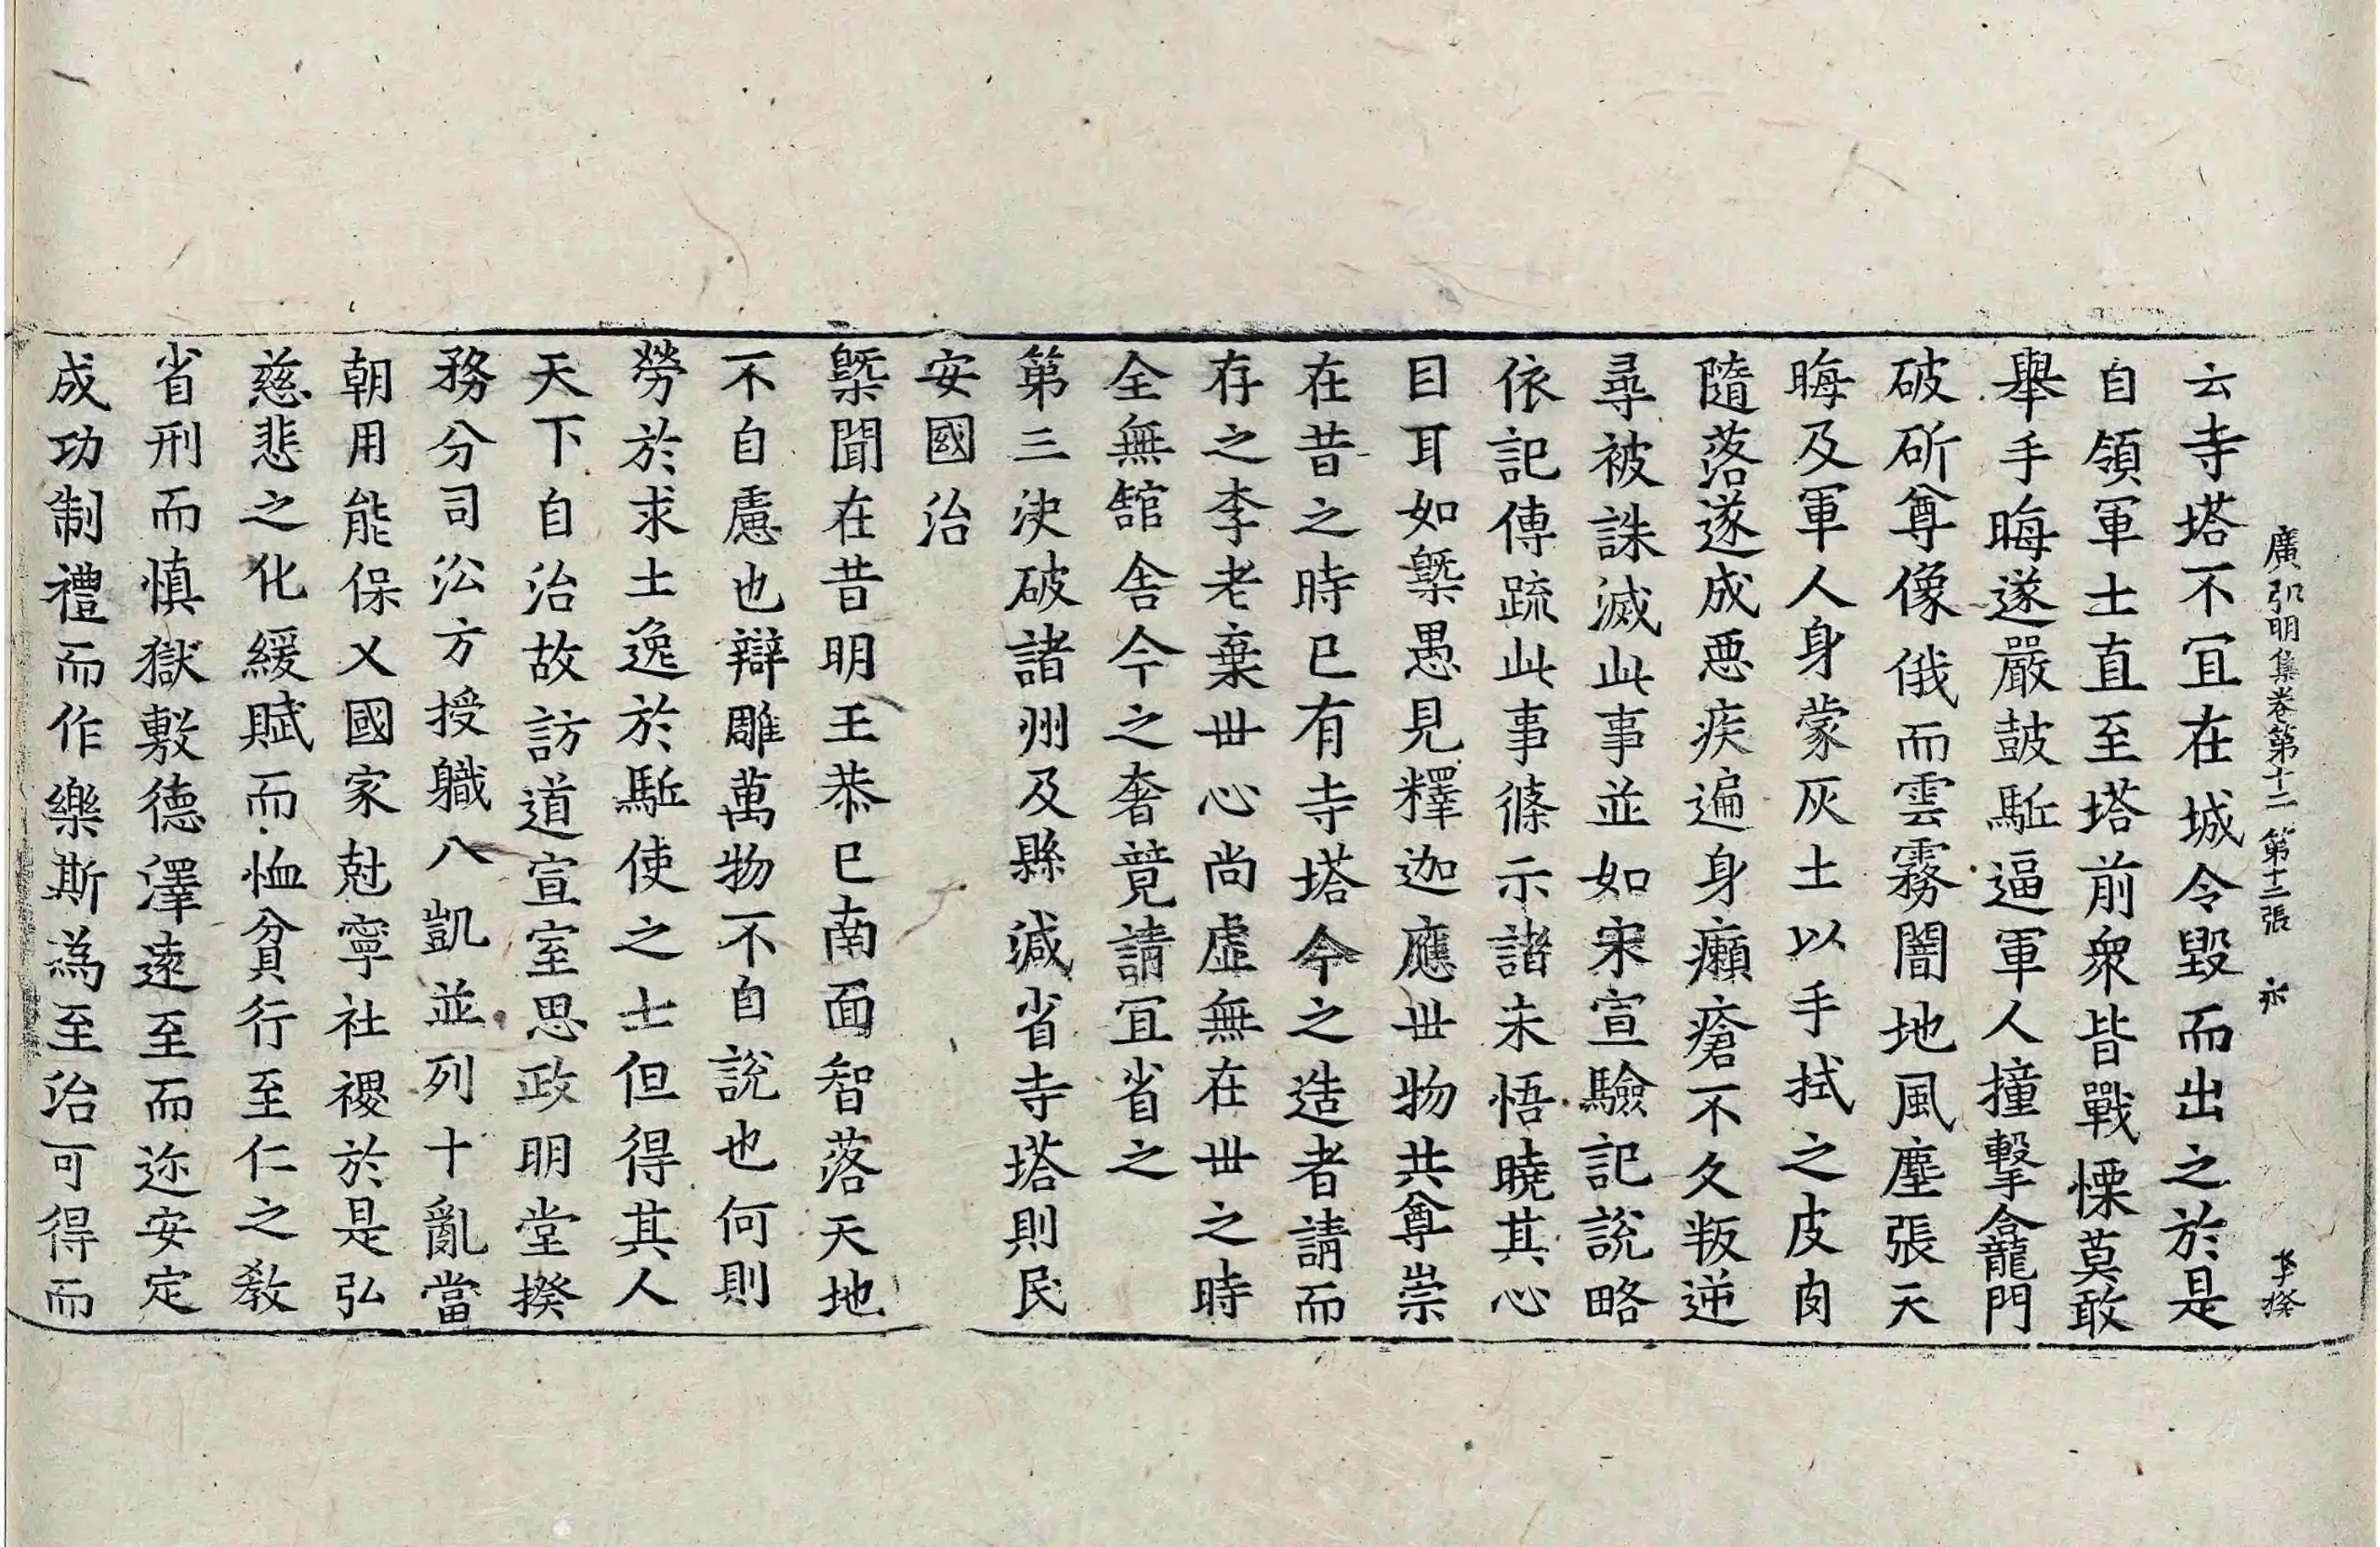 廣弘明集卷第十二 第十二張 永 李揆
云寺塔不冝在城令毀而出之於是
自領軍士直至塔前衆皆戰慄莫敢
舉手晦遂嚴鼓駈逼軍人撞擊龕門
破斫尊像俄而雲霧闇地風塵張天
晦及軍人身蒙灰土以手拭之皮肉
隨落遂成惡疾遍身癩瘡不久叛逆
尋被誅滅此事並如宋宣驗記說略
依記傳疏此事條示諸未悟曉其心
目耳如槩愚見釋迦應世物共尊崇
在昔之時已有寺塔今之造者請而
存之李老棄世心尚虛無在世之時
全無舘舍今之奢竟請冝省之
第三決破諸州及縣減省寺塔則民
安國治
槩聞在昔明王恭已南面智落天地
不自慮也辯雕萬物不自說也何則
勞於求士逸於駈使之士但得其人
天下自治故訪道宣室思政明堂揆
務分司㳂方授職八凱並列十亂當
朝用能保乂國家尅寧社稷於是弘
慈悲之化緩賦而恤貧行至仁之教
省刑而慎獄敷德澤遠至而迩安定
成功制禮而作樂斯為至治可得而